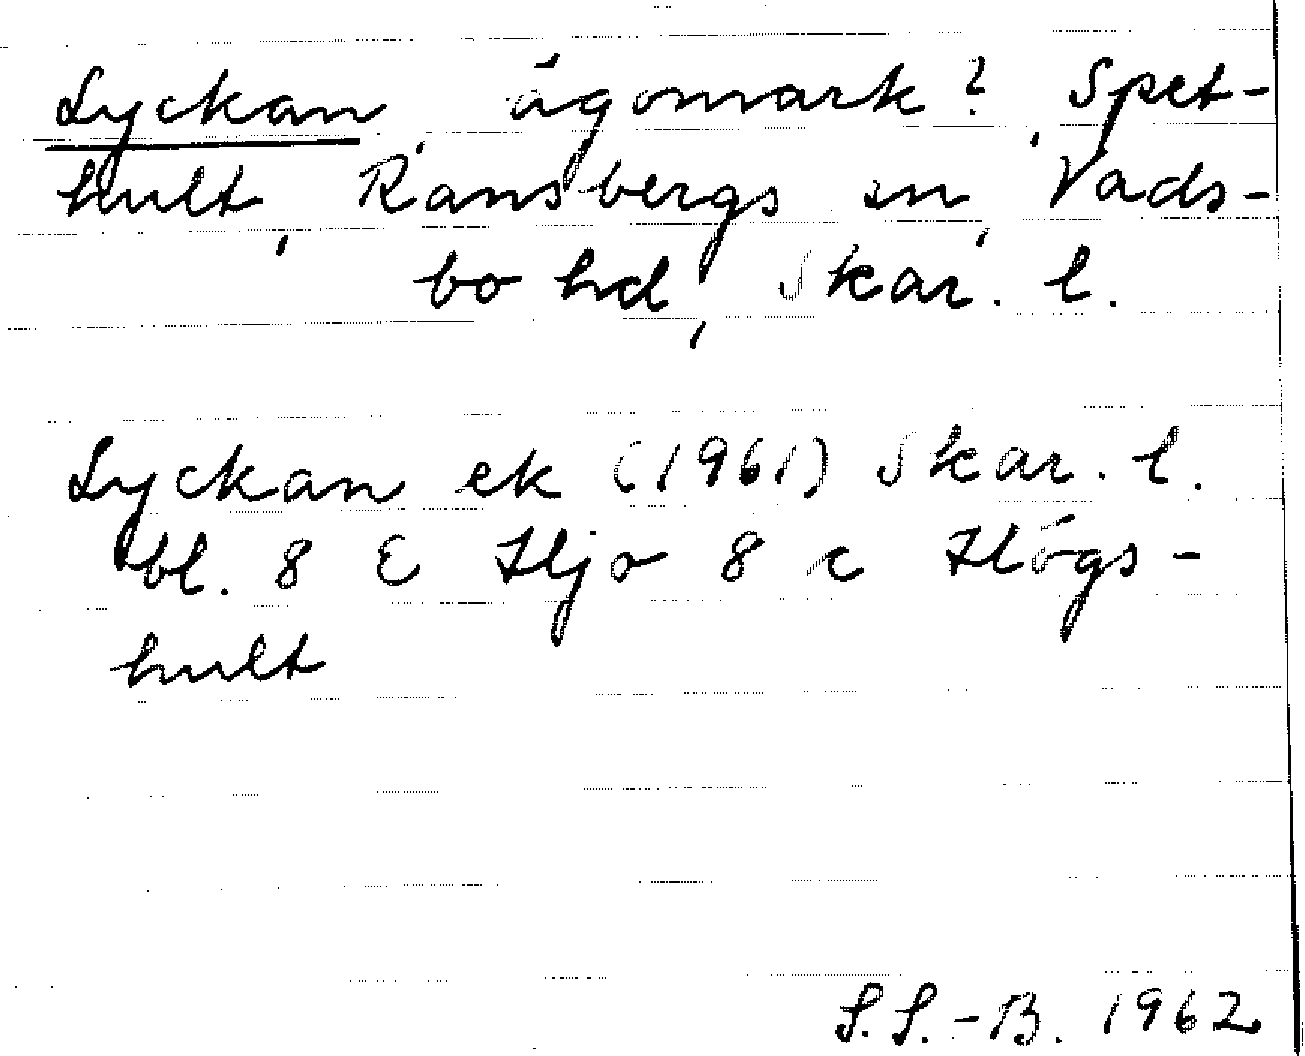 Lyckan, ägomark?, Spet-
hult, Ransbergs sn, Vads-
bo hd, Skar. l.
Lyckan ek (1961) Skar. l.
bl. 8 E Hjo 8 c Högs-
hult
S.S.-B. 1962